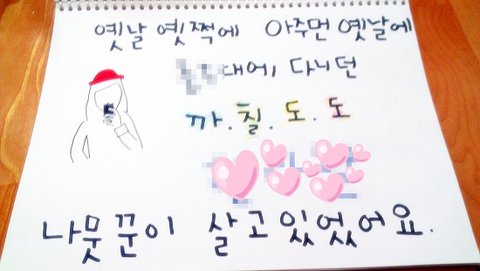 옛날 옛쩍에 아주먼 옛날에
대에, 다니던
까.칠.도.도
나뭇꾼이 살고있었어요.